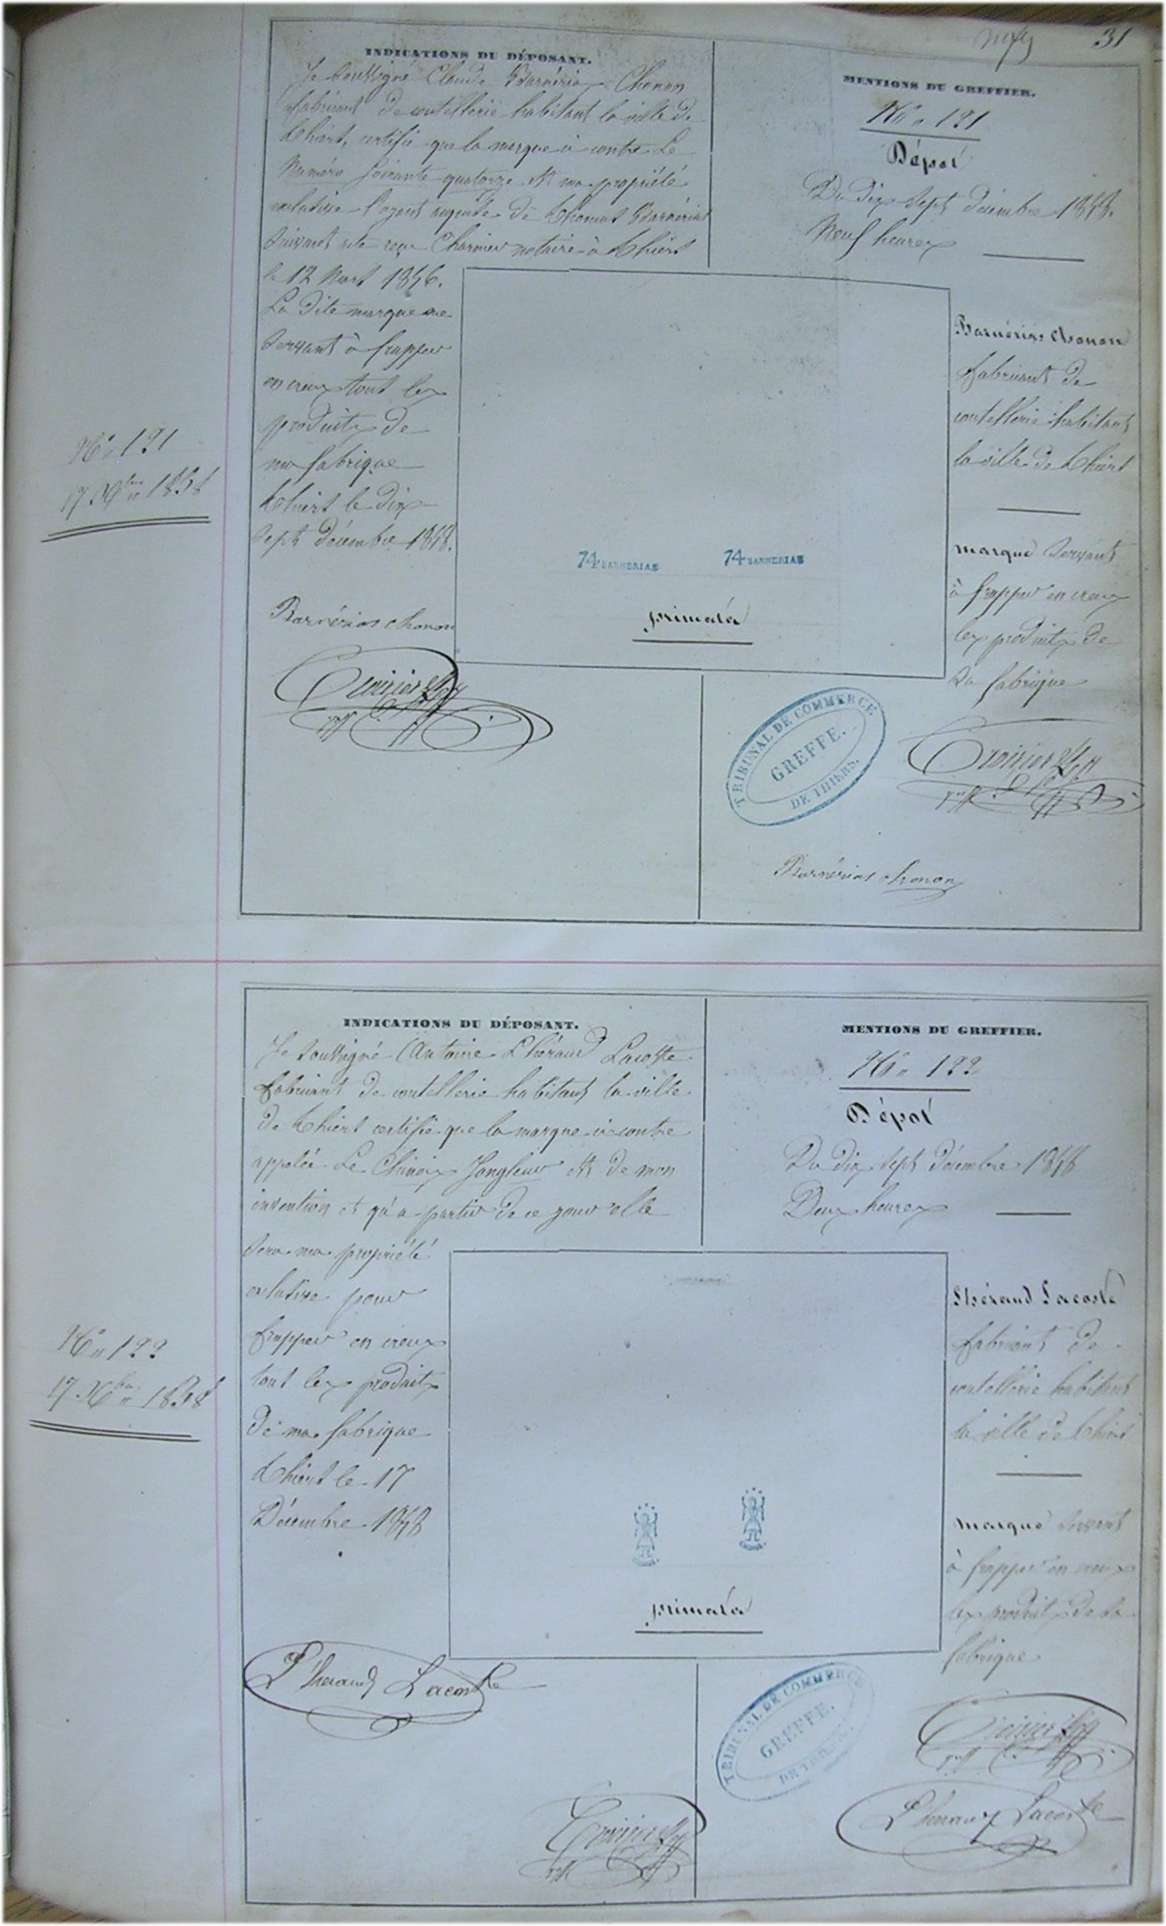 31
N° 121
17 Xbre 1858
INDICATIONS DU DÉPOSANT.
Je soussigné Claude Barnérias Chonon
fabricant de coutellerie habitant la ville de
Thiers, certifie que la marque ci contre Le
Numéro soixante quatorze est ma propriété
exclusive l'ayant acquise de Thomas Barnérias
suivant acte reçu Charnier notaire à Thiers
le 12 Mars 1846.
La dite marque me
servant à frapper
en creux tout les
produits de
ma fabrique
Thiers le dix
sept décembre 1858.
Barnérias chonon
74 BARNERIAS
74 BARNERIAS
primata
MENTIONS DU GREFFIER.
N° 121
Dépot
Du dix sept décembre 1858.
Neuf heures
Barnérias chonon
fabricant de
coutellerie habitant
la ville de Thiers
marque servant
à frapper en creux
les produits de
sa fabrique
TRIBUNAL DE COMMERCE
GREFFE.
DE THIERS.
Barnérias chonon
N° 122
17 Xbre 1858
INDICATIONS DU DÉPOSANT.
Je soussigné Antoine Lhéraud Lacoste
fabricant de coutellerie habitant la ville
de Thiers certifie que la marque ci contre
appelée Le Chinois Jongleur est de mon
invention et qu'a partir de ce jour elle
sera ma propriété
exclusive pour
frapper en creux
tout les produits
de ma fabrique
Thiers le 17
Décembre 1858
Lheraud Lacoste
primata
MENTIONS DU GREFFIER.
N° 122
Dépot
Du dix sept décembre 1858
Deux heures
Lhéraud Lacoste
fabricant de
coutellerie habitant
la ville de Thiers
marque servant
à frapper en creux
les produits de sa
fabrique
TRIBUNAL DE COMMERCE
GREFFE.
DE THIERS.
Lheraud Lacoste